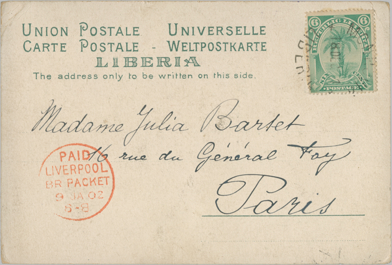 UNION POSTALE UNIVERSELLE
CARTE POSTALE - WELTPOSTKARTE
LIBERIA
The address only to be written on this side.
6 6
Madame Julia Bartet
16 rue du Général Foy
Paris
PAID
LIVERPOOL
BR PACKET
9 JA 02